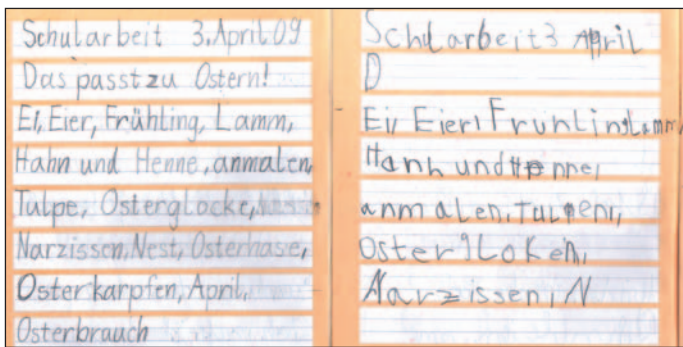 Schularbeit 3. April 09
Das passt zu Ostern!
Ei, Eier, Frühling, Lamm,
Hahn und Henne, anmalen,
Tulpe, Osterglocke,
Narzissen, Nest, Osterhase,
Osterkarpfen, April,
Osterbrauch
Schularbeit 3 April
D
Ei, Eier, Fruhling Lamm,
Hanh und Henne,
anmalen, Tulpen,
Ostergloken,
Narzissen, N